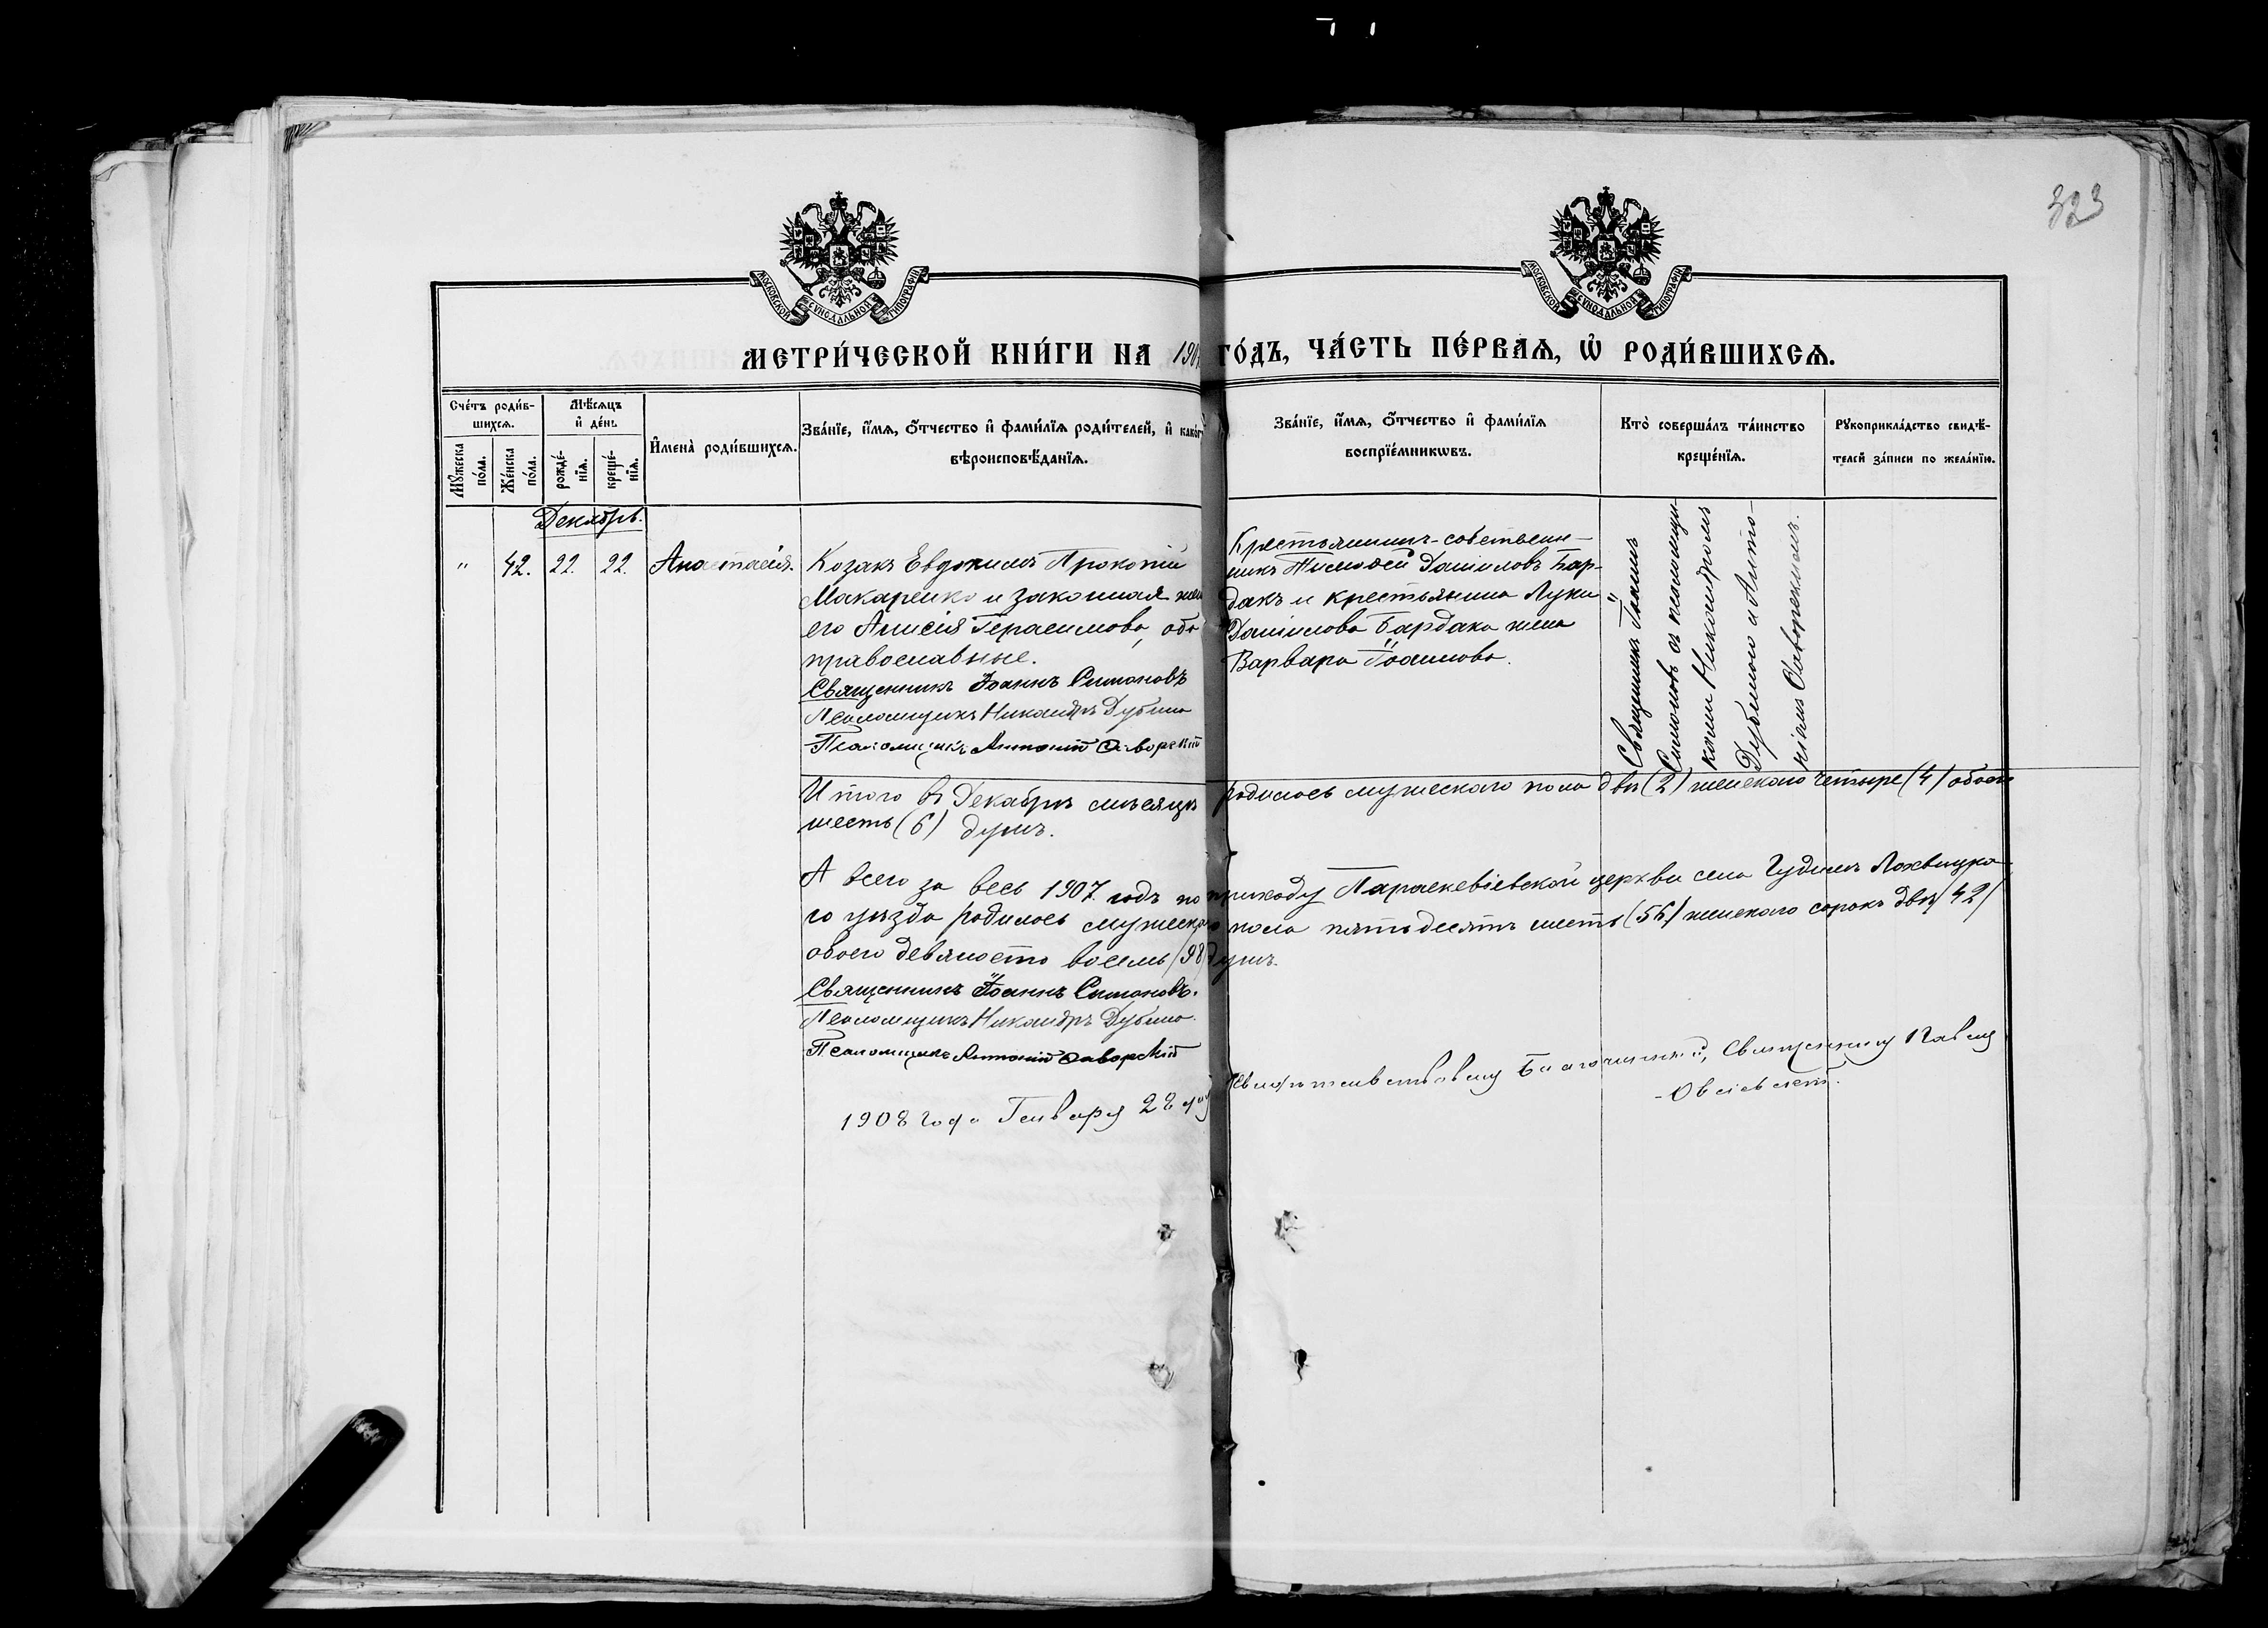 323
МОСКОВСКОЙ СѴНОДАЛЬНОЙ ТИПОГРАФІИ
МОСКОВСКОЙ СѴНОДАЛЬНОЙ ТИПОГРАФІИ
МЕТРИ́ЧЕСКОЙ КНИ́ГИ НА 190 ГО́ДЪ, ЧА́СТЬ ПЕ́РВАѦ, Ѡ҆ РОДИ́ВШИХСѦ.
Сче́тъ роди́в-
шихсѧ.
Мꙋ́жеска по́ла.
Же́нска по́ла.
Мѣ́сѧцъ
и҆ де́нь
рожде́-
нїѧ.
креще́-
нїѧ.
И҆мена̀ роди́вшихсѧ.
Зва́нїе, и҆́мѧ, ѻ҆́тчество и҆ фами́лїѧ роди́телей, и҆ како́гѡ
вѣроисповѣ́данїѧ.
Зва́нїе, и҆́мѧ, ѻ҆́тчество и҆ фами́лїѧ
воспрїе́мникѡвъ.
Кто̀ соверша́лъ та́инство
креще́нїѧ.
Рꙋкоприкла́дство свидѣ́-
телей за́писи по жела́нїю.
Декабрь.
" 42. 22. 22. Анастасія.
Козакъ Евдокимъ Прокопіи
Макаренко и законная жен
его Анисія Герасимова, оба
православные.
Священникъ Іоаннъ Симоновъ
Псаломщикъ Никандръ Дубина
Псаломщикъ Антоній Яворскій
Крестьянинъ-собственн-
никъ Тимофей Даниловъ Бар-
дакъ и крестьянина Луки
Данилова Бардака жена
Варвара Іоаннова.
Священникъ Іоаннъ
Симоновъ съ псаломщи-
ками Никандромъ
Дубиною и Анто-
ніемъ Яворскимъ.
Итого въ Декабрѣ мѣсяцѣ родилось мужескаго пола два (2) женскаго четыре (4) обоего
шесть (6) душъ.
А всего за весь 1907 годъ по приходу Параскевіевской церкви села Гудимъ Лохвицка-
го уѣзда родилось мужескаго пола пятьдесятъ шесть (56) женскаго сорокъ два (42)
обоего девяносто восемь (98) душъ.
Священникъ Іоаннъ Симоновъ.
Псаломщикъ Никандръ Дубина.
Псаломщикъ Антоній Яворскій
1908 года Генваря 28 дня Благочинный, Священникъ Павелъ